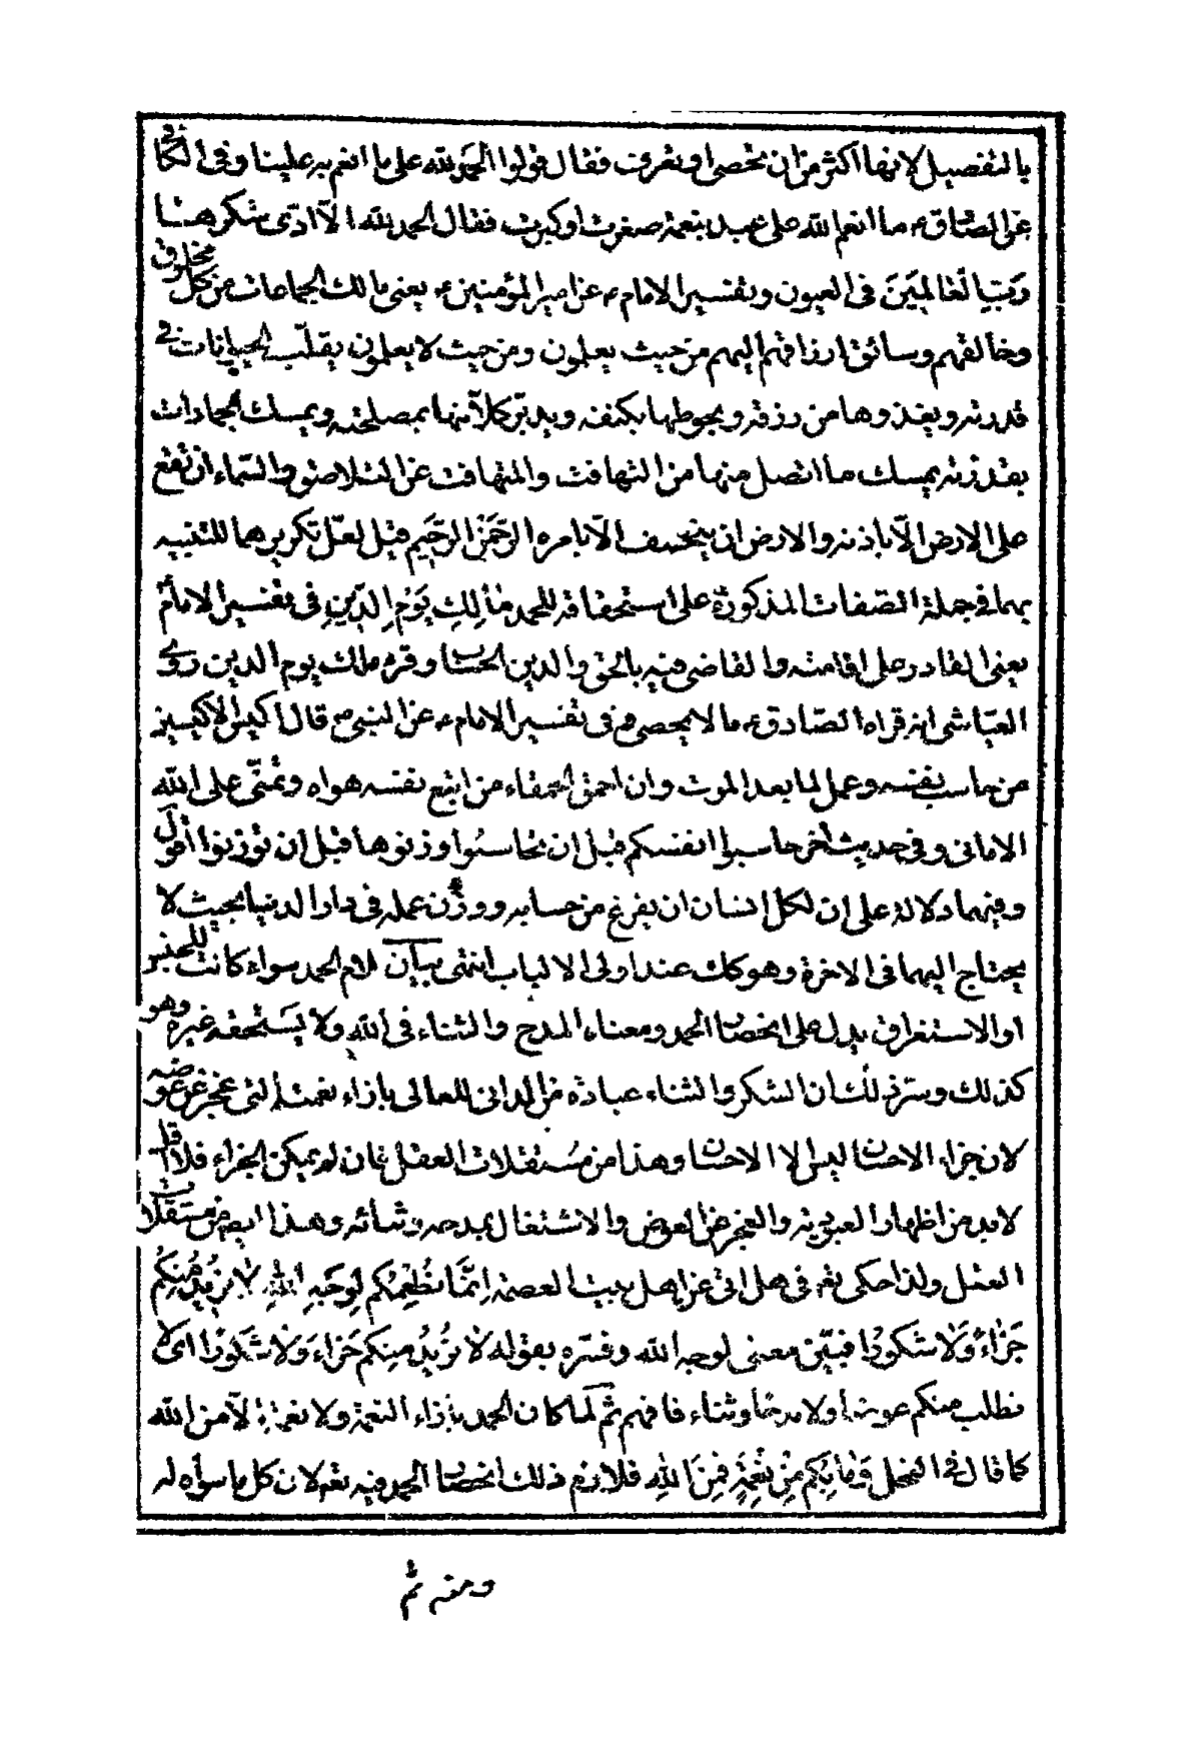 بالتفصيل لانها اكثر من ان تحصى او تعرف فقال قولوا الحمد لله على ما انعم به علينا وفى الكافى
عن الصادق ع ما انعم الله على عبد بنعمة صغرت او كبرت فقال الحمد لله الا ادّى شكرها
رَبِّ الْعٰالَمِينَ فى العيون وتفسير الامام ع عن امير المؤمنين ع يعنى مالك الجماعات من كل مخلوق
وخالقهم وسائق ارزاقهم اليهم من حيث يعلمون ومن حيث لا يعلمون يقلّب الحيوانات فى
قدرته ويغذوها من رزقه ويحوطها بكنفه ويدبّر كلاّ منها بمصلحته ويمسك الجمادات
بقدرته يمسك ما اتصل منها من التهافت والمتهافت عن التلاصق والسّماء ان تقع
على الارض الاّ باذنه والارض ان ينخسف الاّ بامره الرَّحْمٰنِ الرَّحِيمِ قيل لعلّ تكريرهما للتنبيه
بهما فى جملة الصّفات المذكورة على استحقاقه للحمد مٰالِكِ يَوْمِ الدِّينِ فى تفسير الامام
يعنى القادر على اقامته والقاضى فيه بالحق والدين الحساب وقرء ملك يوم الدين روى
العيّاشى انه قراه الصّادق ع ما لا يحصى وفى تفسير الامام ع عن النبى ص قال اكيس الاكيسين
من حاسب نفسه وعمل لما بعد الموت وان احمق الحمقاء من اتبع نفسه هواه وتمنّى على الله
الامانى وفى حديث آخر حاسبوا انفسكم قبل ان تحاسبوا وزنوها قبل ان توزنوا اقول
وفيهما دلالة على ان لكل انسان ان يفرغ من حسابه ووزن عمله فى دار الدنيا بحيث لا
يحتاج اليهما فى الاخرة وهو كك عند اولى الالباب انتهى بيان لام الحمد سواء كانت للجنس
او الاستغراق يدل على اختصاص الحمد ومعناه المدح والثناء فى الله ولا يَستحقه غيره وهو
كذلك وسرّ ذلك ان الشكر والثناء عبادة من الدانى للعالى بازاء نعمته التى عجز عن عوضه
لان جزاء الاحسان ليس الا الاحسان وهذا من مُستقلات العقل فان لم يمكن الجزاء فلا اقل
لا بد من اظهار العبودية والعجز عن العوض والاشتغال بمدحه وثنائه وهذا ايضا من مستقلات
العقل ولذا حكى تعم فى هل اتى عن اهل بيت العصمة اِنَّمٰا نُطْعِمُكُمْ لِوَجْهِ اللّٰهِ لٰا نُرِيدُ مِنْكُمْ
جَزٰاءً وَلٰا شُكُورًا فبيّن معنى لوجه الله وفسّره بقوله لٰا نُرِيدُ مِنْكُمْ جَزٰاءً وَلٰا شُكُورًا اى لا
نطلب منكم عوضا ولا مدحا وثناء فافهم ثم لمّا كان الحمد بازاء النعمة ولا نعمة الاّ من الله
كما قال فى النحل وَمٰا بِكُمْ مِنْ نِعْمَةٍ فَمِنَ اللّٰهِ فلازم ذلك اختصاص الحمد فيه تعم لان كل ما سواه له
ومنه ثم